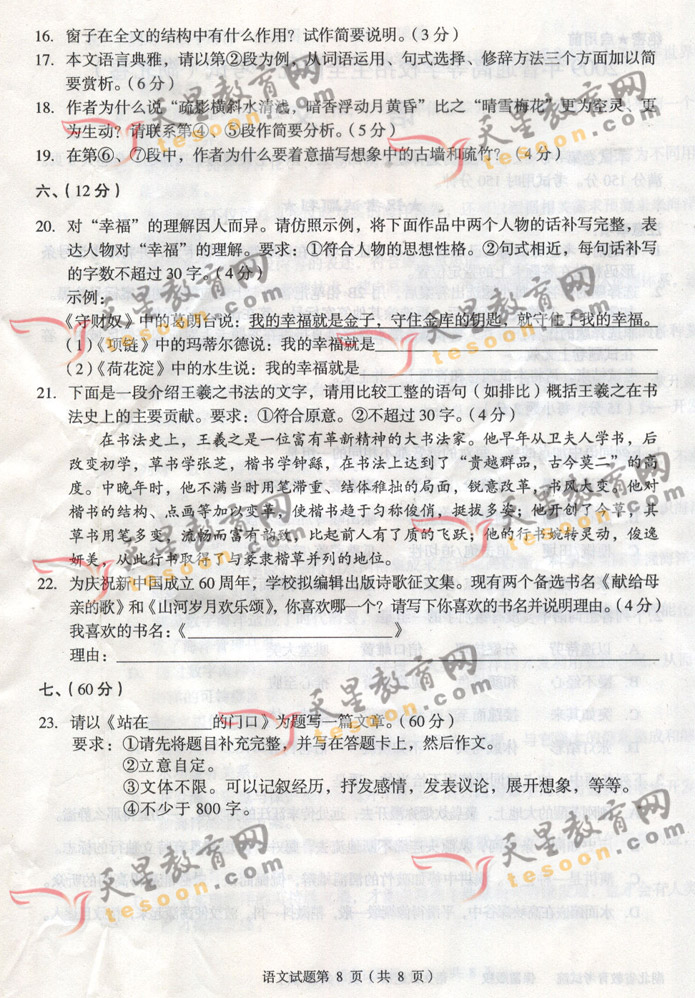 16. 窗子在全文的结构中有什么作用？试作简要说明。(3分)
17. 本文语言典雅，请以第②段为例，从词语运用、句式选择、修辞方法三个方面加以简
要赏析。(6分)
18. 作者为什么说“疏影横斜水清浅，暗香浮动月黄昏”比之“晴雪梅花”更为空灵、更
为生动？请联系第④、⑤段作简要分析。(5分)
19. 在第⑥、⑦段中，作者为什么要着意描写想象中的古墙和疏竹？(4分)
六、(12分)
20. 对“幸福”的理解因人而异。请仿照示例，将下面作品中两个人物的话补写完整，表
达人物对“幸福”的理解。要求：①符合人物的思想性格。②句式相近，每句话补写
的字数不超过30字。(4分)
示例：
《守财奴》中的葛朗台说：我的幸福就是金子，守住金库的钥匙，就守住了我的幸福。
(1)《项链》中的玛蒂尔德说：我的幸福就是
(2)《荷花淀》中的水生说：我的幸福就是
21. 下面是一段介绍王羲之书法的文字，请用比较工整的语句（如排比）概括王羲之在书
法史上的主要贡献。要求：①符合原意。②不超过30字。(4分)
在书法史上，王羲之是一位富有革新精神的大书法家。他早年从卫夫人学书，后
改变初学，草书学张芝，楷书学钟繇，在书法上达到了“贵越群品，古今莫二”的高
度。中晚年时，他不满当时用笔滞重、结体稚拙的局面，锐意改革，书风大变。他对
楷书的结构、点画等加以变革，使楷书趋于匀称俊俏，挺拔多姿；他开创了今草，其
草书用笔多变，流畅而富有韵致，比起前人有了质的飞跃；他的行书蜿转灵动，俊逸
妍美，从此行书取得了与篆隶楷草并列的地位。
22. 为庆祝新中国成立60周年，学校拟编辑出版诗歌征文集。现有两个备选书名《献给母
亲的歌》和《山河岁月欢乐颂》，你喜欢哪一个？请写下你喜欢的书名并说明理由。(4分)
我喜欢的书名：《 》
理由：
七、(60分)
23. 请以《站在______的门口》为题写一篇文章。(60分)
要求：①请先将题目补充完整，并写在答题卡上，然后作文。
②立意自定。
③文体不限。可以记叙经历，抒发感情，发表议论，展开想象，等等。
④不少于800字。
语文试题第 8 页（共 8 页）
天星教育网
tesoon.com
天星教育网
tesoon.com
天星教育网
tesoon.com
天星教育网
tesoon.com
天星教育网
tesoon.com
天星教育网
tesoon.com
天星教育网
tesoon.com
天星教育网
tesoon.com